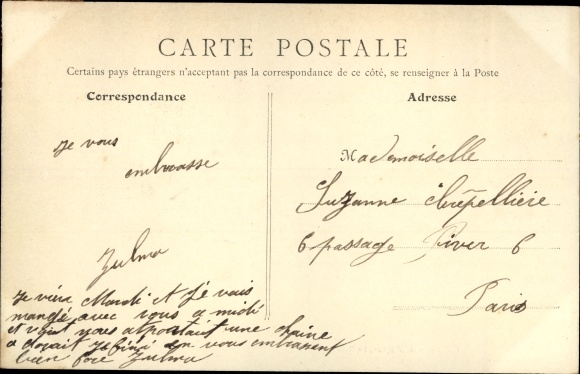 CARTE POSTALE
Certains pays étrangers n'acceptant pas la correspondance de ce côté, se renseigner à la Poste
Correspondance
Adresse
Je vous
embrasse
Zulma
Je viéra Mardi et Je vais
mangé avec vous a midi
et vous une chaine
a en vous embrassent
bien fore Zulma
Mademoiselle
Suzanne
6 passage River 6
Paris